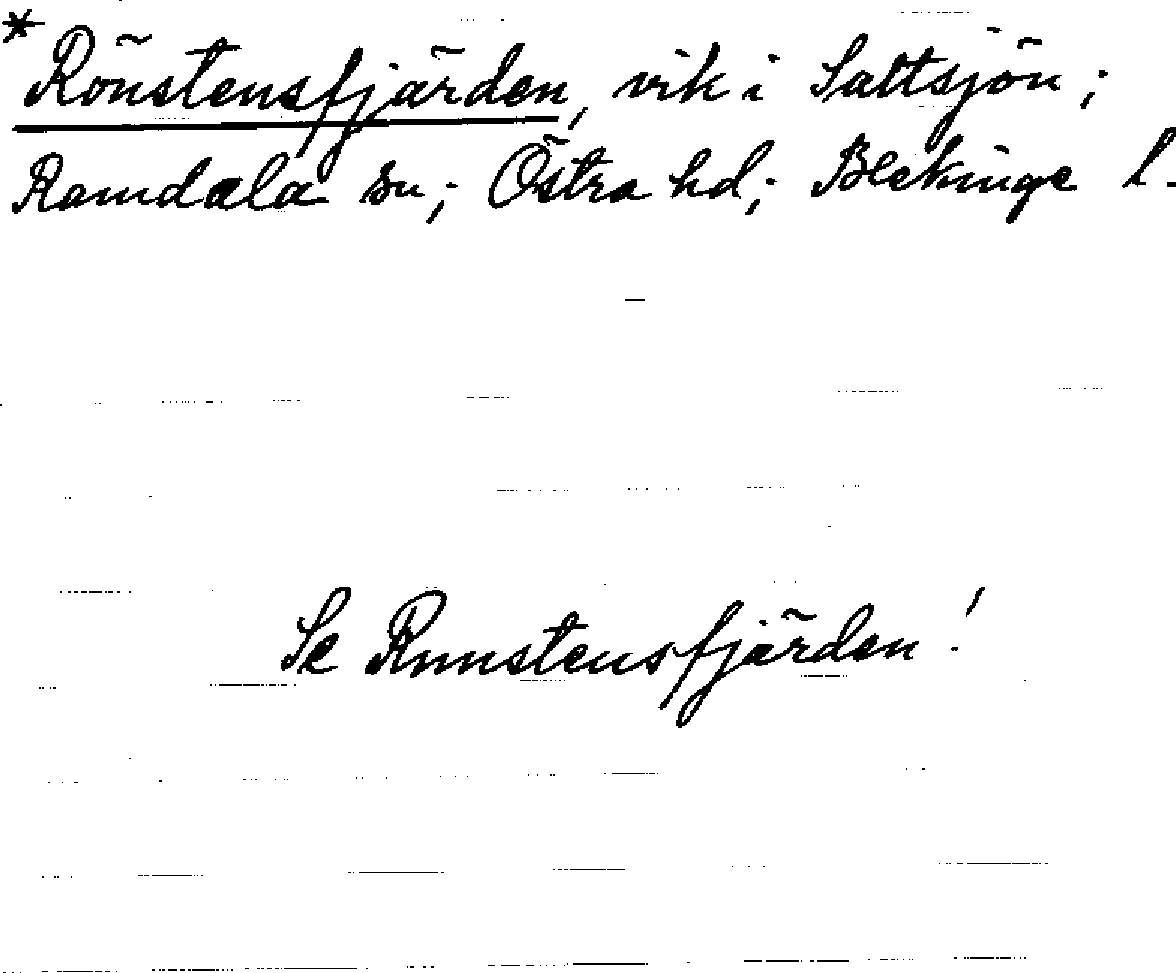 * Rönstensfjärden, vik i Saltsjön;
Ramdala sn; Östra hd; Blekinge l.
Se Runstensfjärden!